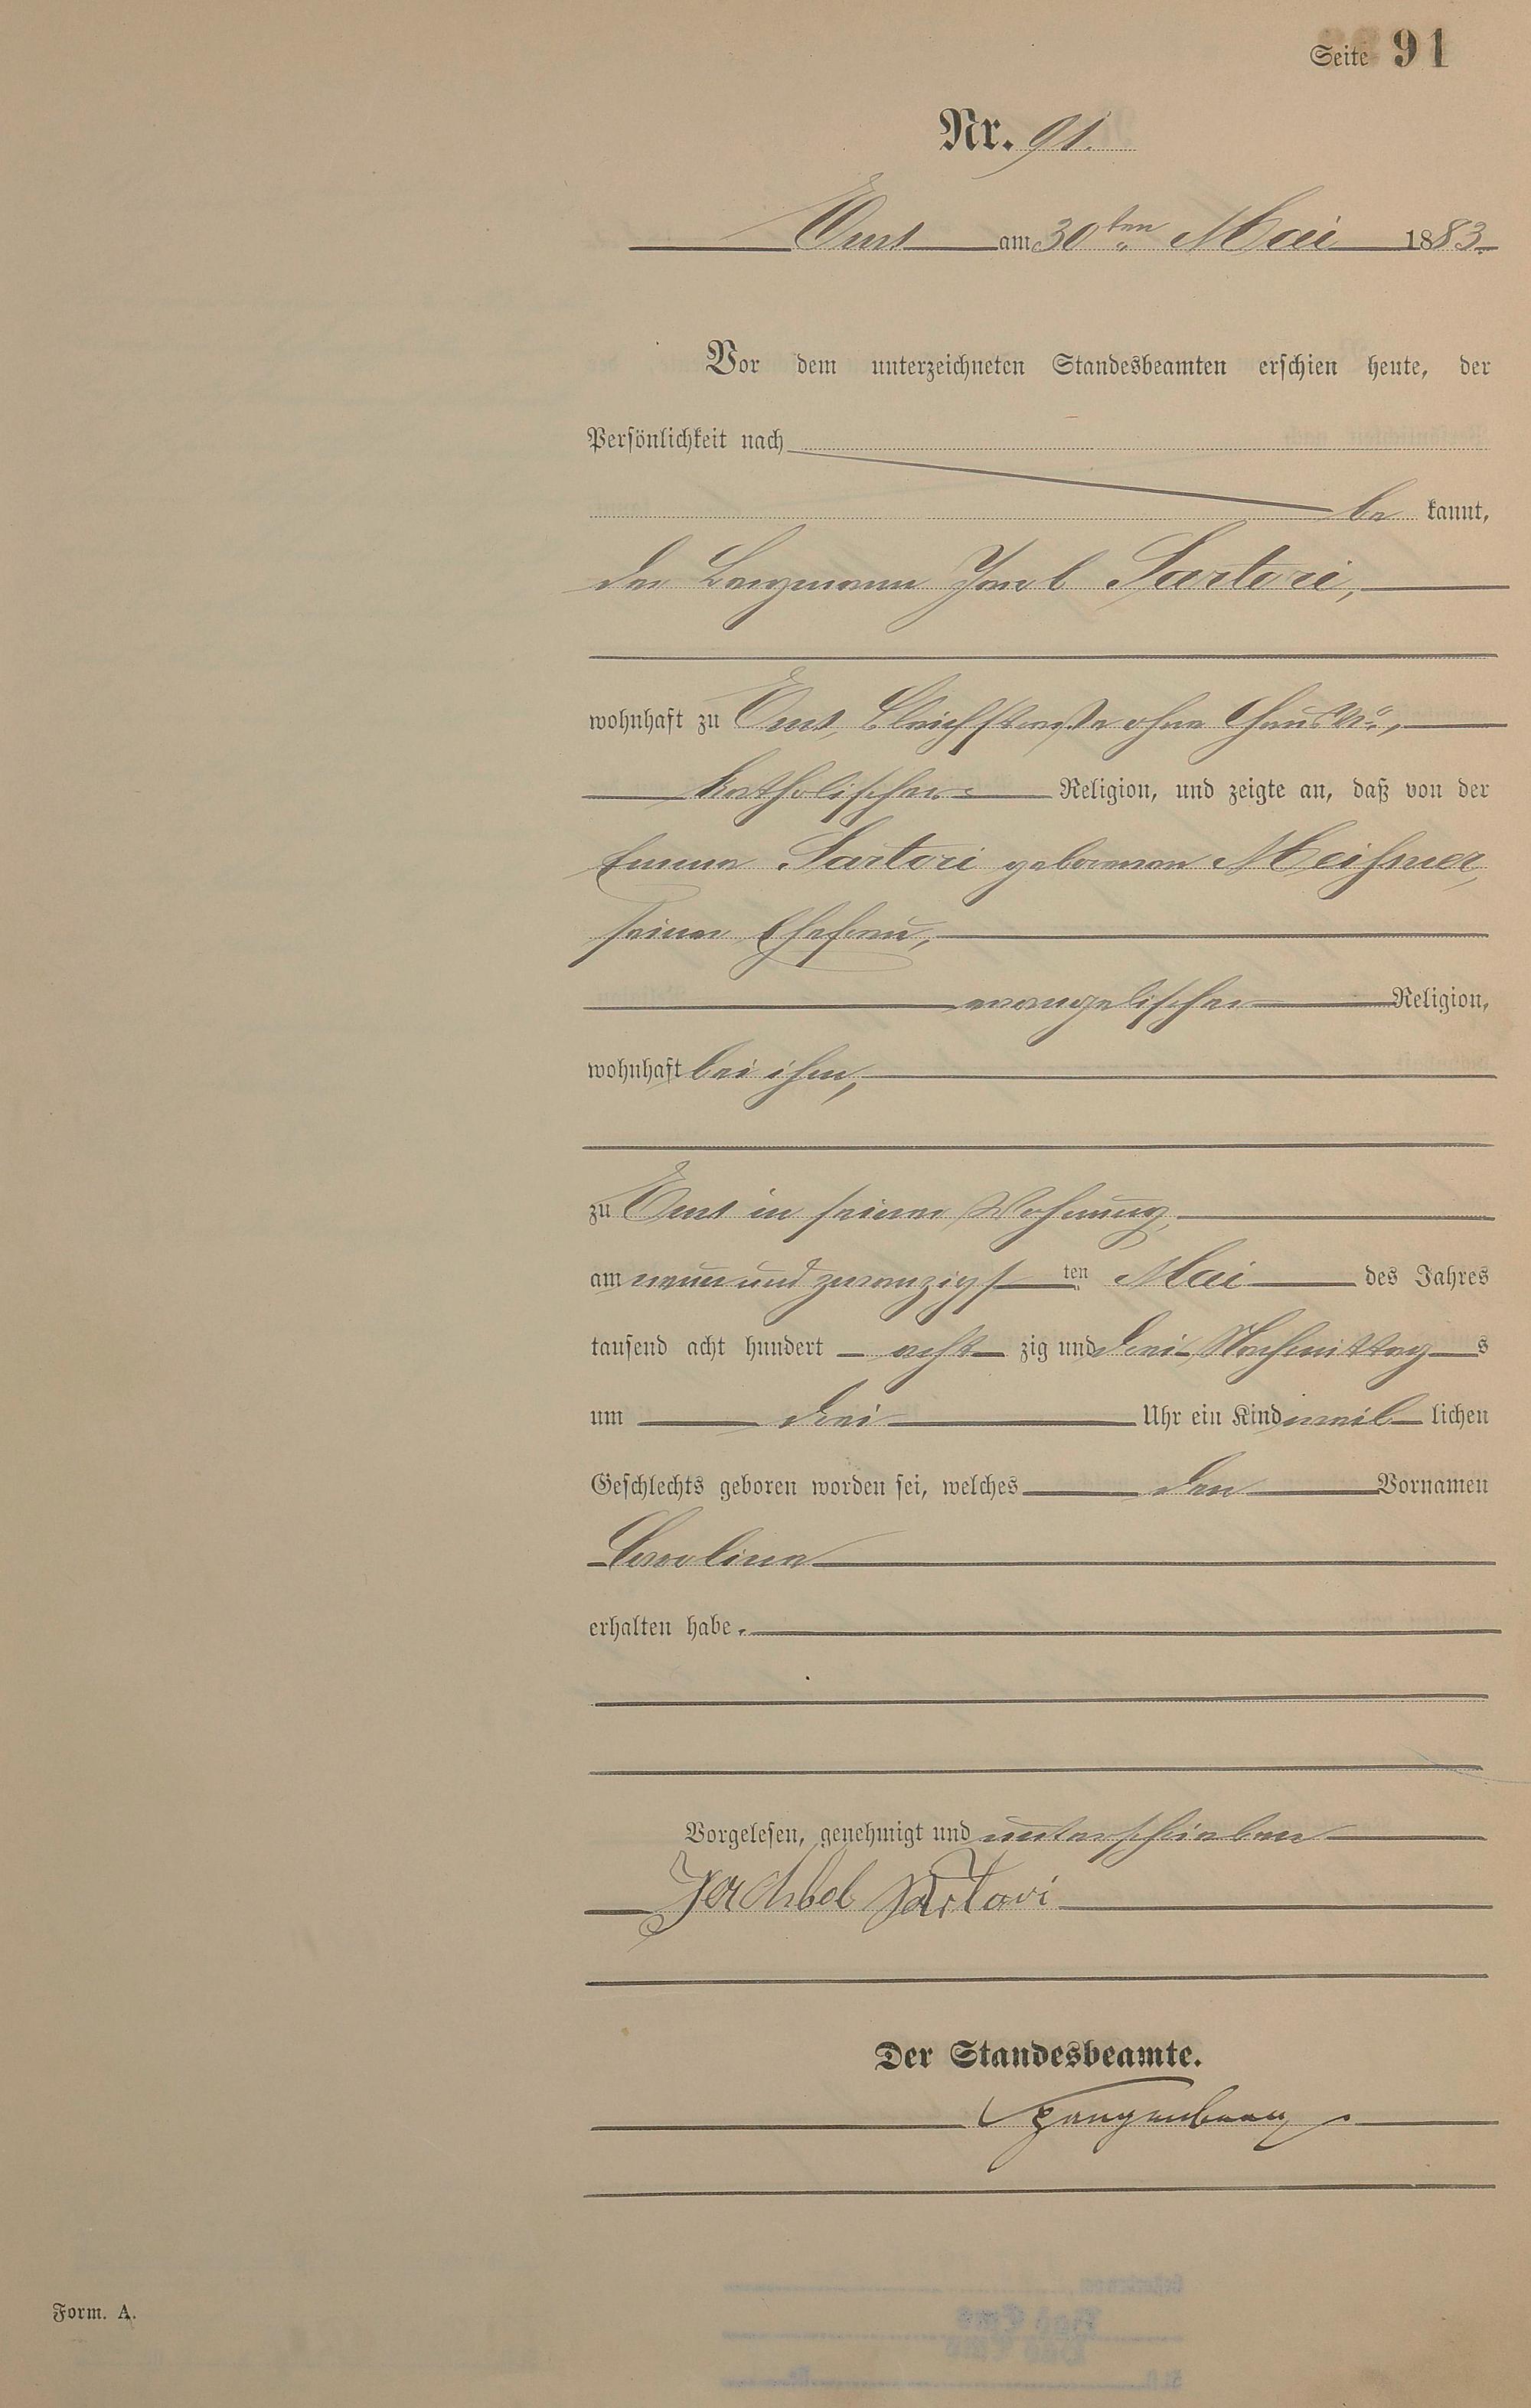 Seite 91
Nr. 91.
Ems am 30ten Mai 1883.
Vor dem unterzeichneten Standesbeamten erschien heute, der
Persönlichkeit nach
be kannt,
der Bergmann Jacob Sartori,
wohnhaft zu Ems, Bleichstraße ohne Haus No,
katholischer Religion, und zeigte an, daß von der
Emma Sartori geborenen Meißner,
seiner Ehefrau,
evangelischer Religion,
wohnhaft bei ihm,
zu Ems in seiner Wohnung,
am neun und zwanzigs ten Mai des Jahres
tausend acht hundert acht zig und drei Nachmittag s
um drei Uhr ein Kind weib lichen
Geschlechts geboren worden sei, welches den Vornamen
Carolina
erhalten habe.
Vorgelesen, genehmigt und unterschrieben
Sartori
Der Standesbeamte.
Form. A.
Bad Ems